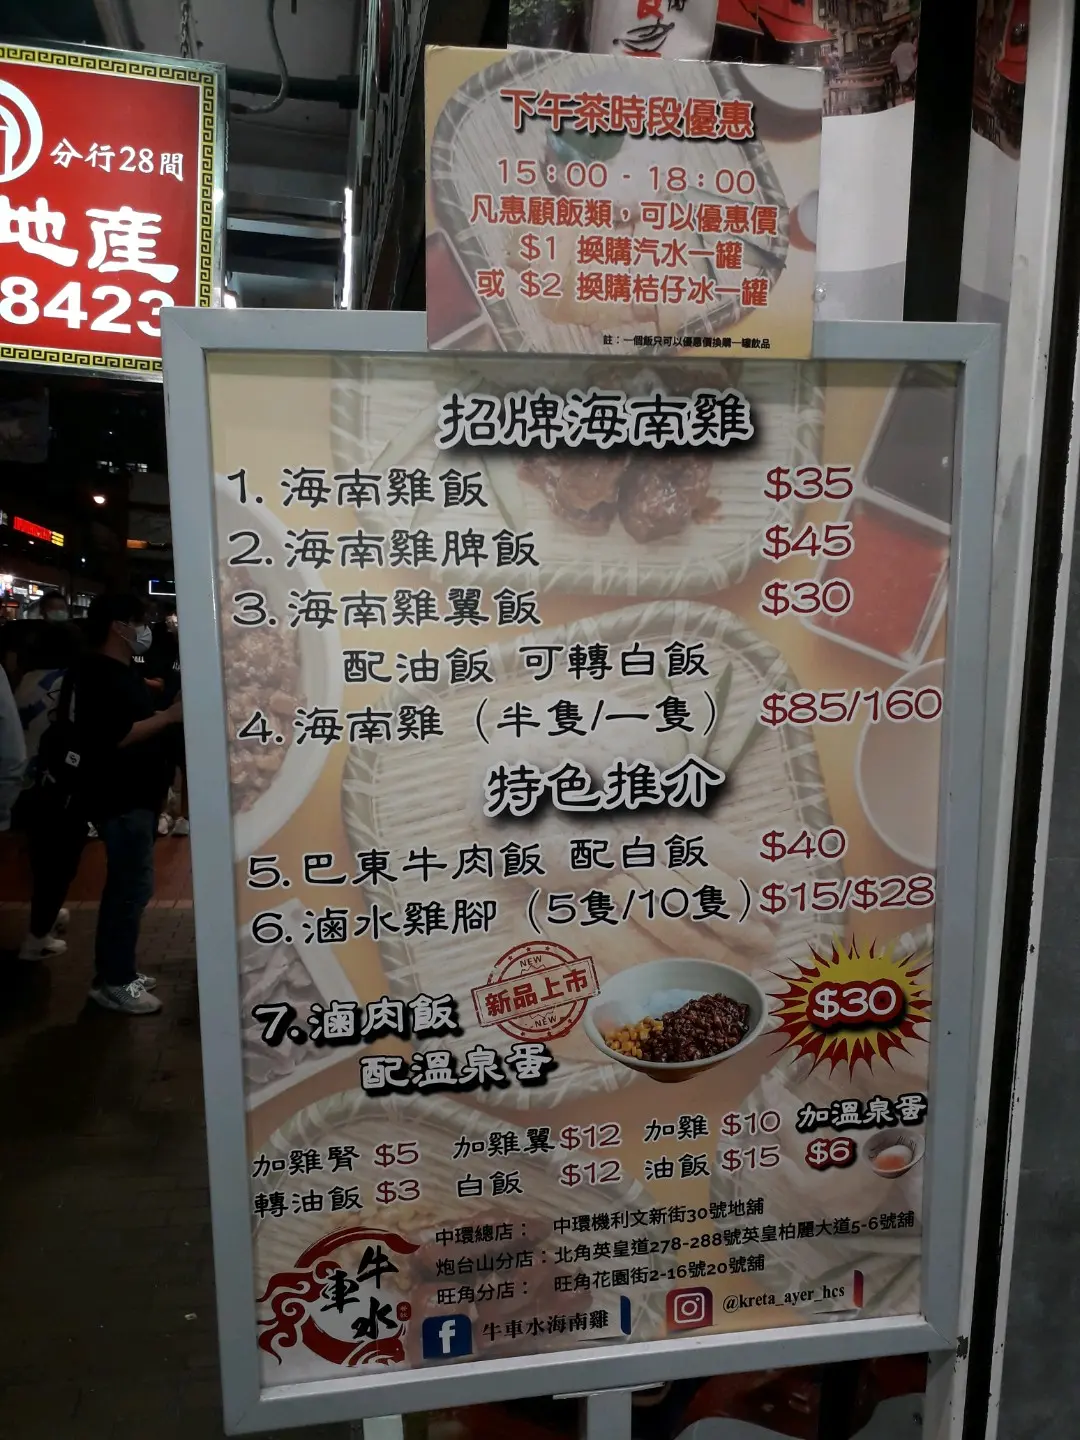 分行28間
地產
8423
下午茶時段優惠
15:00 - 18:00
凡惠顧飯類，可以優惠價
$1 換購汽水一罐
或 $2 換購桔仔冰一罐
註：一個飯只可以優惠價換購一罐飲品
招牌海南雞
1. 海南雞飯 $35
2. 海南雞脾飯 $45
3. 海南雞翼飯 $30
配油飯 可轉白飯
4. 海南雞（半隻/一隻） $85/160
特色推介
5. 巴東牛肉飯 配白飯 $40
6. 滷水雞腳（5隻/10隻） $15/$28
NEW
新品上市
NEW
7. 滷肉飯
配溫泉蛋
$30
加雞腎 $5 加雞翼 $12 加雞 $10 加溫泉蛋
轉油飯 $3 白飯 $12 油飯 $15 $6
中環總店： 中環機利文新街30號地舖
炮台山分店：北角英皇道278-288號英皇柏麗大道5-6號舖
旺角分店： 旺角花園街2-16號20號舖
牛車水
牛車水海南雞
@kreta_ayer_hcs